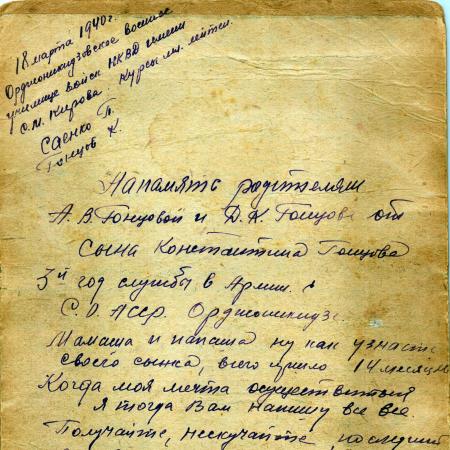 18 марта 1940 г.
Орджоникидзовское военное
училище войск НКВД имени
С. М. Кирова. Курсы мл. лейтен.
Саенко П.
Гонцов К.
Напамять родителям
А. В. Гонцовой и Д. К. Гонцову от
сына Константина Гонцова
3й год службы в Армии. г
С. О. АССР. Орджоникидзе
Мамаша и папаша ну как узнаёте
своего сынка, всего прошло 14 месяцев
Когда моя мечта осуществиться
я тогда Вам напишу все все.
Получайте, нескучайте, последний